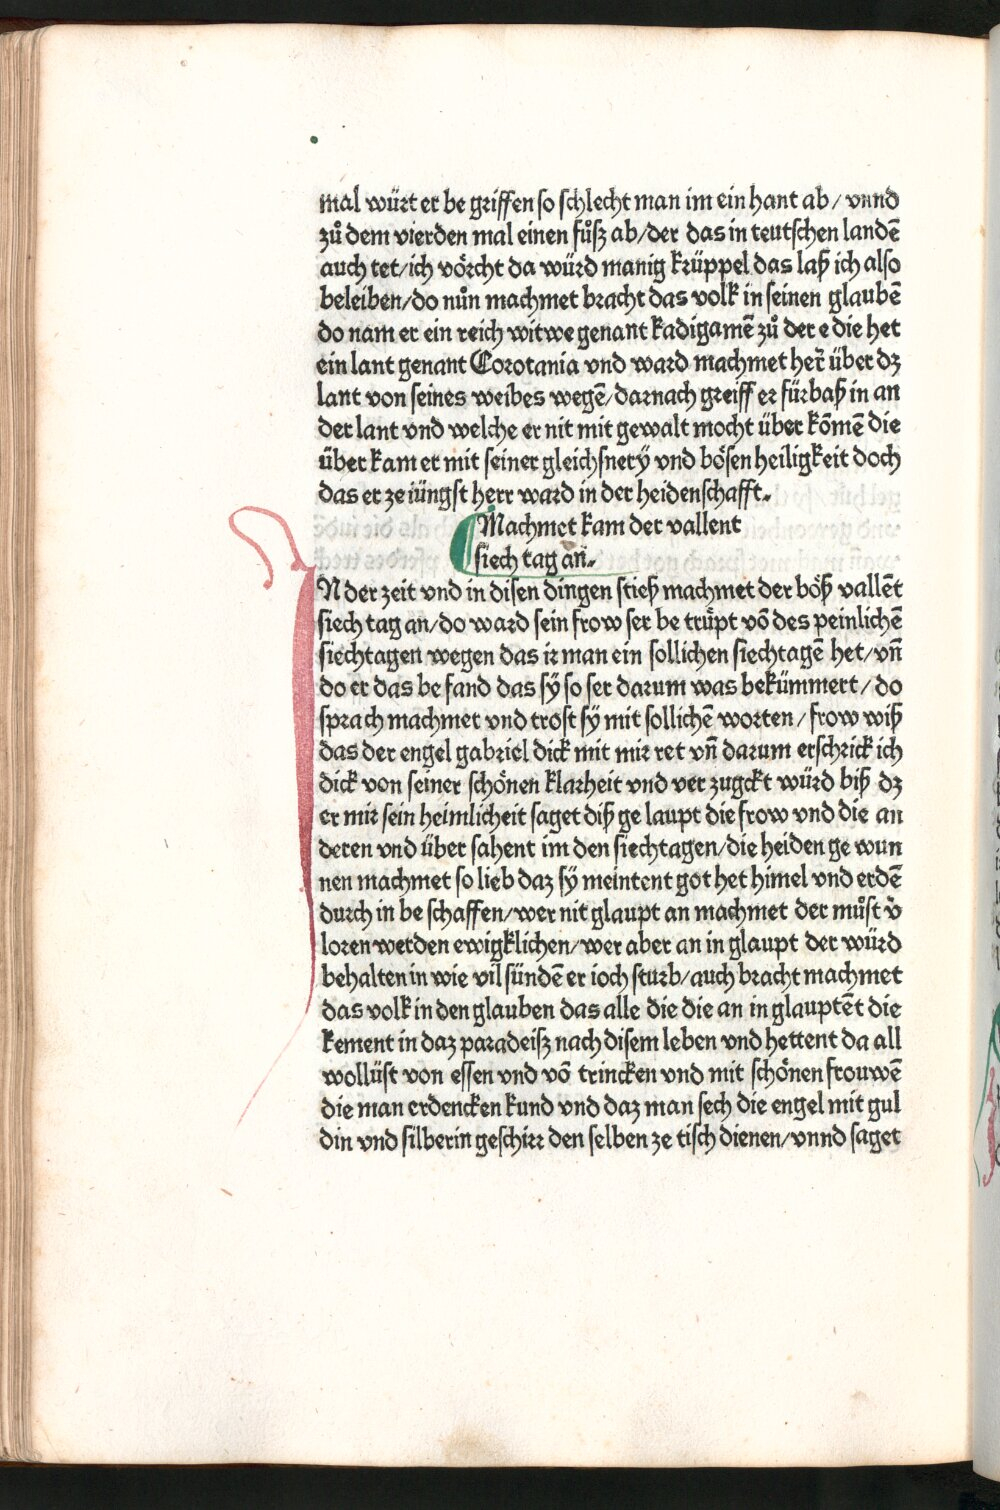 mal würt er be griffen so schlecht man im ein hant ab / vnnd
zů dem vierden mal einen fůsz ab/der das in teutschen landē
auch tet/ich vörcht da würd manig krüppel das laß ich also
beleiben/do nůn machmet bracht das volk in seinen glaubē
do nam er ein reich witwe genant kadigamē zů der e die het
ein lant genant Corotania vnd ward machmet her̄ über dz
lant von seines weibes wegē/darnach greiff er fürbaß in an
der lant vnd welche er nit mit gewalt mocht über kōmē die
über kam er mit seiner gleichsnerÿ vnd bösen heiligkeit doch
das er ze iüngst herr ward in der heidenschafft.
Machmet kam der vallent
siech tag an.
IN der zeit vnd in disen dingen stieß machmet der böß vallēt
siech tag an/do ward sein frow ser be trůpt vō des peinlichē
siechtagen wegen das ir man ein sollichen siechtagē het/vn̄
do er das be fand das sÿ so ser darum was bekümmert/do
sprach machmet vnd trost sÿ mit sollichē worten/frow wiß
das der engel gabriel dick mit mir ret vn̄ darum erschrick ich
dick von seiner schönen klarheit vnd ver zugckt würd biß dz
er mir sein heimlicheit saget diß ge laupt die frow vnd die an
deren vnd über sahent im den siechtagen/die heiden ge wun
nen machmet so lieb daz sÿ meintent got het himel vnd erdē
durch in be schaffen/wer nit glaupt an machmet der můst v̄
loren werden ewigklichen/wer aber an in glaupt der würd
behalten in wie vil sündē er ioch sturb/auch bracht machmet
das volk in den glauben das alle die die an in glauptēt die
kement in daz paradeisz nach disem leben vnd hettent da all
wollüst von essen vnd vō trincken vnd mit schönen frouwē
die man erdencken kund vnd daz man sech die engel mit gul
din vnd silberin geschirr den selben ze tisch dienen/vnnd saget